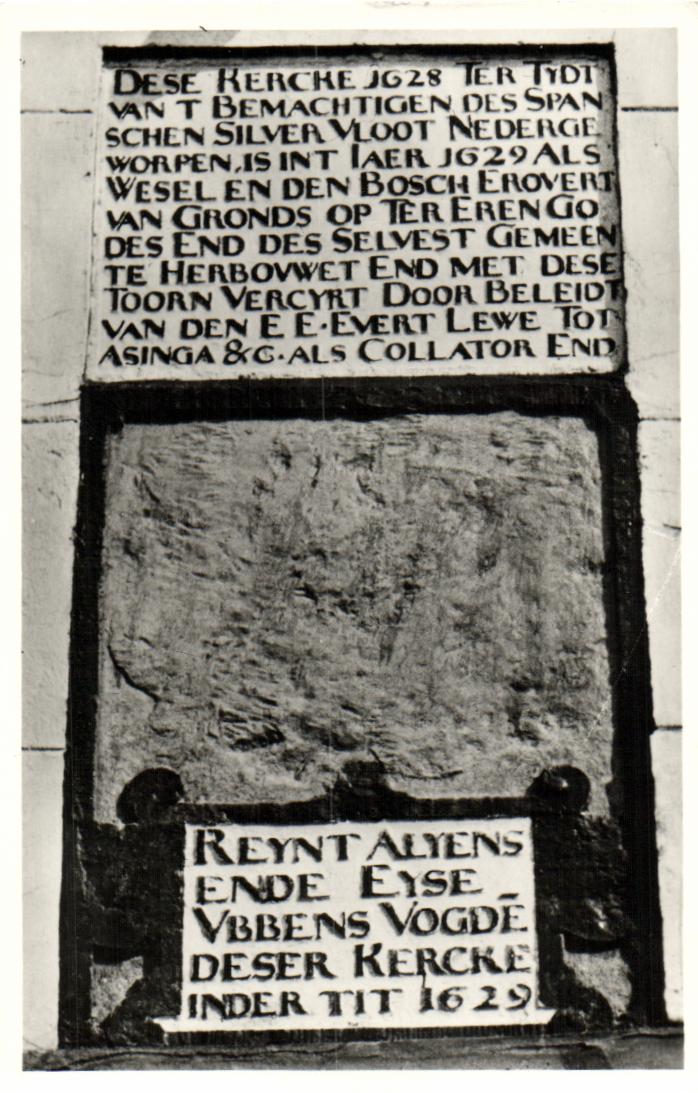 DESE KERCKE 1628 TER TYDT
VAN T BEMACHTIGEN DES SPAN
SCHEN SILVER VLOOT NEDERGE
WORPEN, IS INT IAER 1629 ALS
WESEL EN DEN BOSCH EROVERT
VAN GRONDS OP TER EREN GO
DES END DES SELVEST GEMEEN
TE HERBOVWET END MET DESE
TOORN VERCYRT DOOR BELEIDT
VAN DEN E E·EVERT LEWE TOT
ASINGA &C·ALS COLLATOR END
REYNT ALYENS
ENDE EYSE
VBBENS VOGDĒ
DESER KERCKE
INDER TIT 1629